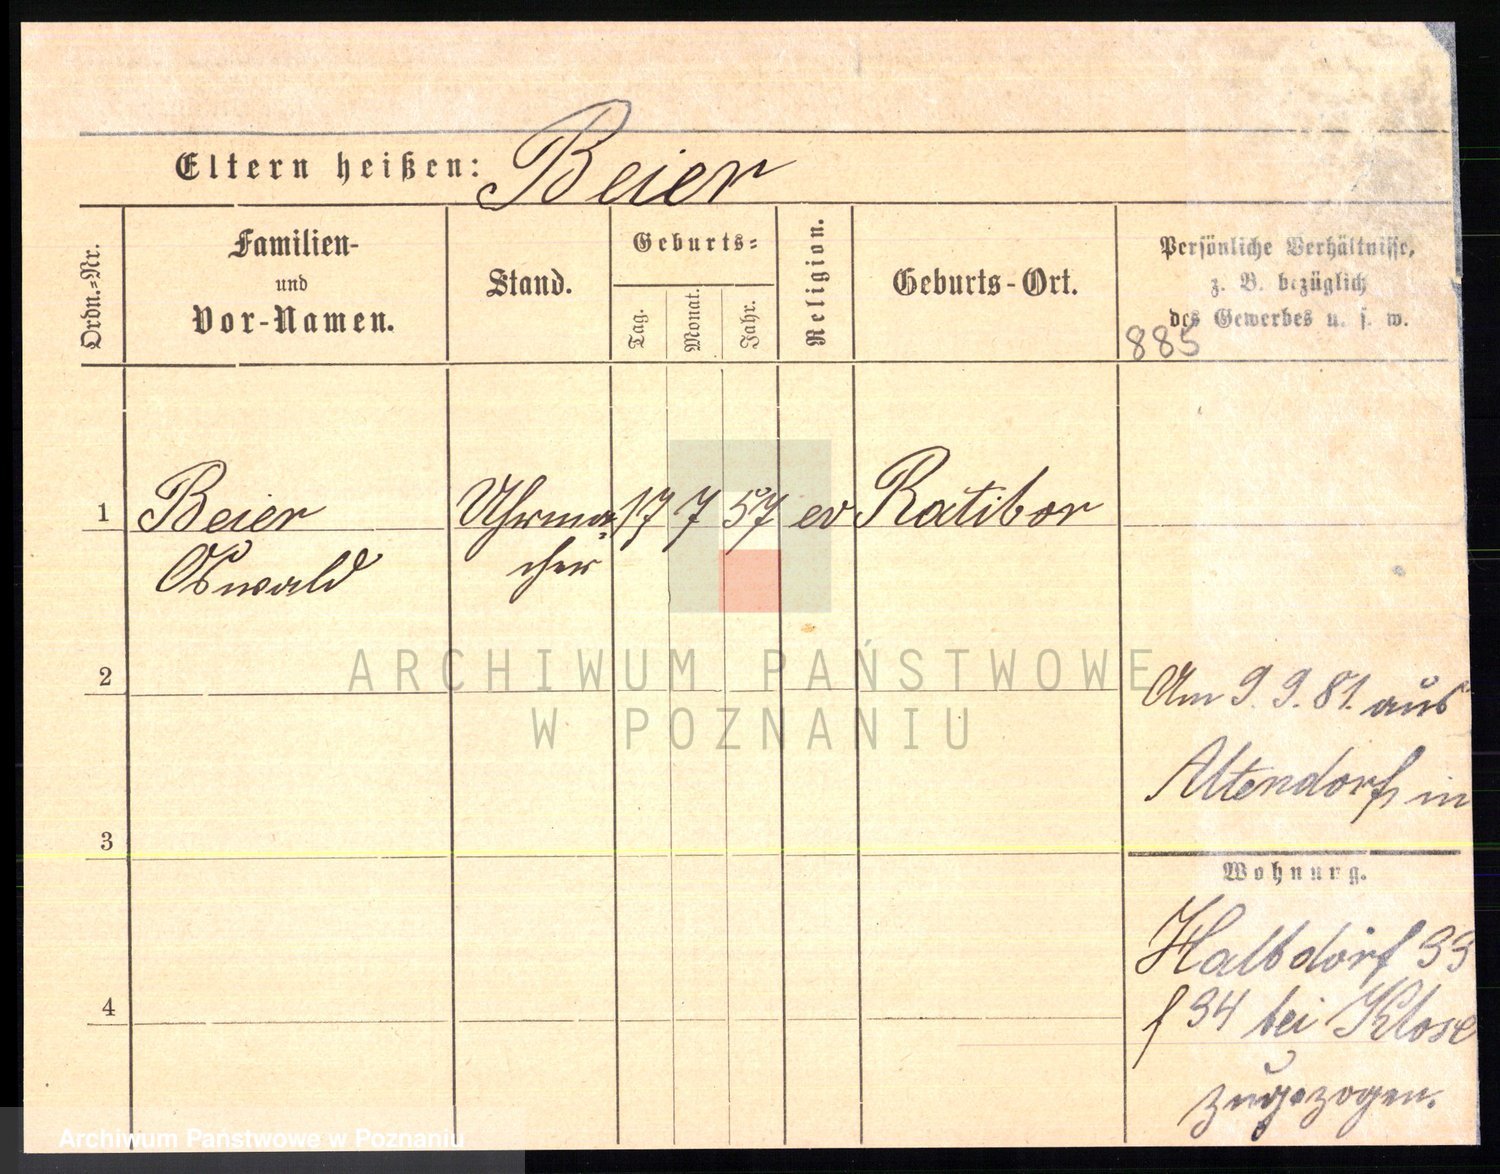 Eltern heißen: Beier
Ordn.=Nr.
Familien-
und
Vor-Namen.
Stand.
Geburts=
Tag.
Monat.
Jahr.
Religion.
Geburts-Ort.
Persönliche Verhältnisse,
z. B. bezüglich
des Gewerbes u. s. w.
885
1 Beier Uhrma= 17 7 57 ev Ratibor
Oswald cher
ARCHIWUM PAŃSTWOWE
W POZNANIU
2
Am 9. 9. 81. aus
Altendorf in
3
Wohnung.
Halbdorf 33
4
/ 34 bei Klose
zugezogen.
Archiwum Państwowe w Poznaniu